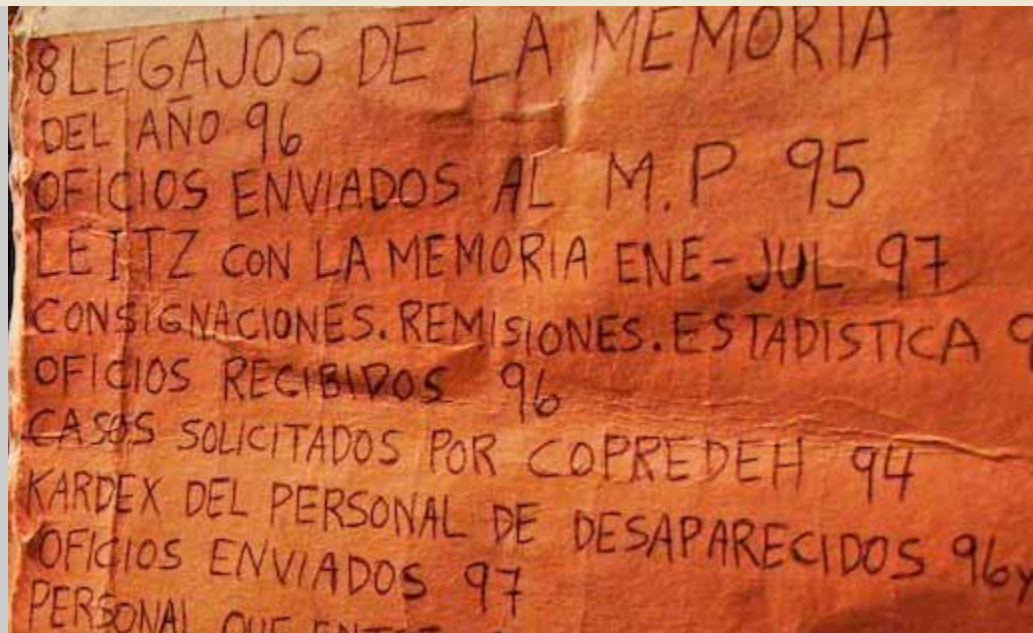 8 LEGAJOS DE LA MEMORIA
DEL AÑO 96
OFICIOS ENVIADOS AL M.P 95
LEITZ CON LA MEMORIA ENE-JUL 97
CONSIGNACIONES. REMISIONES. ESTADISTICA
OFICIOS RECIBIDOS 96
CASOS SOLICITADOS POR COPREDEH 94
KARDEX DEL PERSONAL DE DESAPARECIDOS 96 y
OFICIOS ENVIADOS 97
PERSONAL QUE